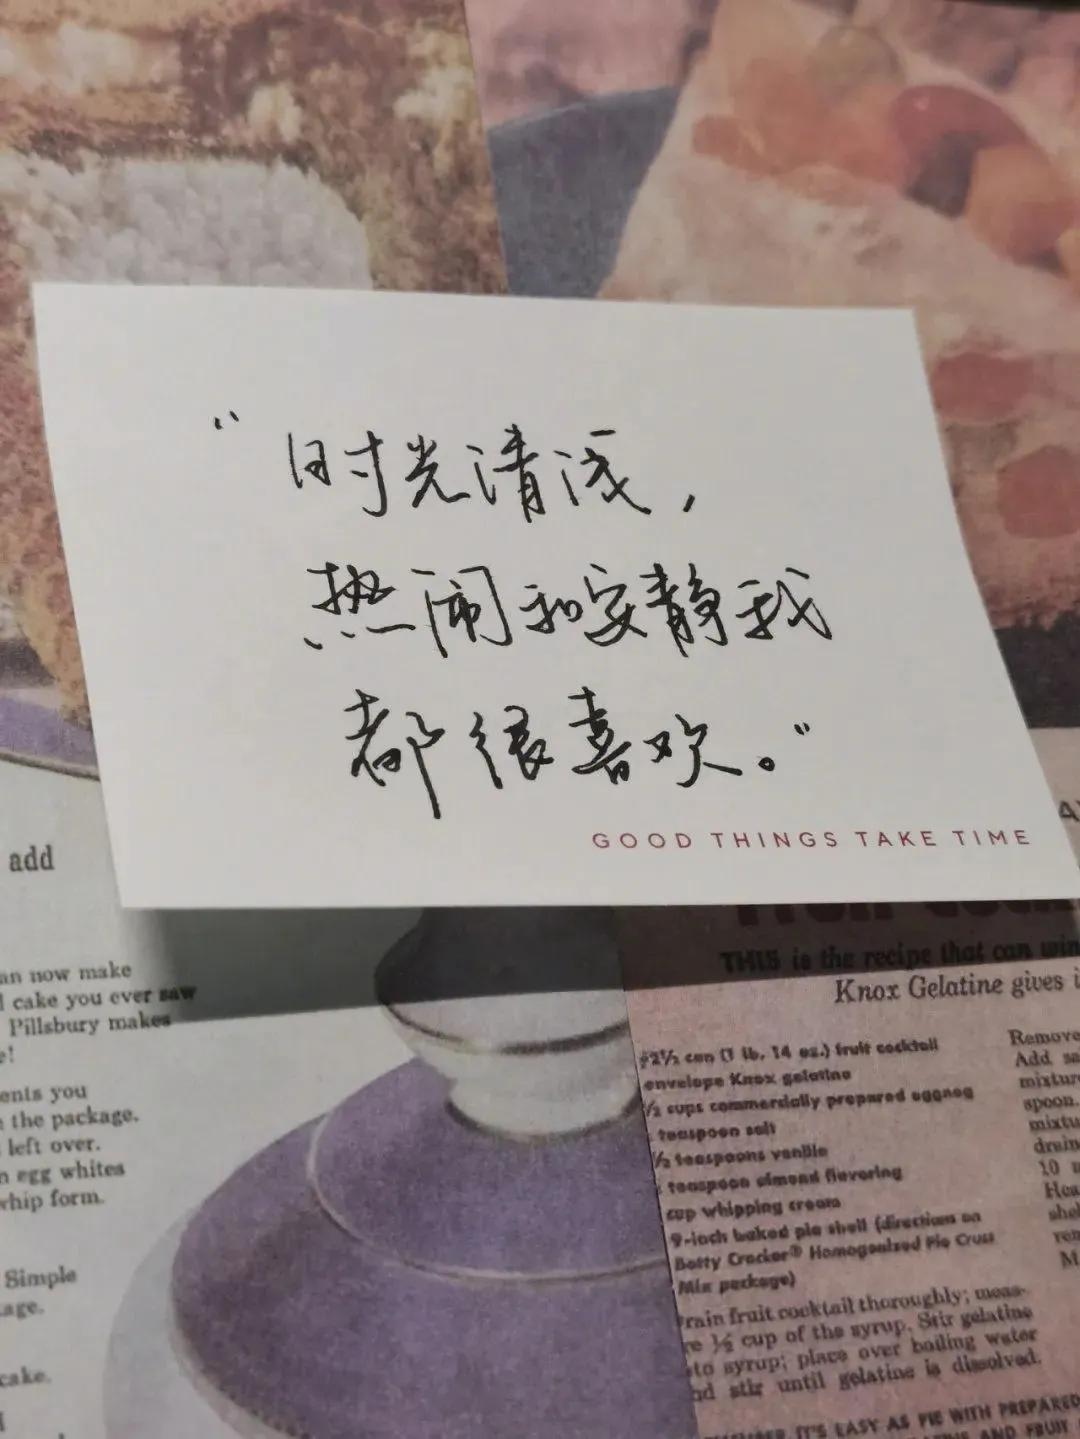 “时光清浅，
热闹和安静我
都很喜欢。”
GOOD THINGS TAKE TIME
add
now make
cake you ever saw
Pillsbury makes
you
the package.
left over.
egg whites
whip form.
Simple
cake.
THIS is the recipe that can win
Knox Gelatine gives
2½ can (1 lb. 14 oz.) fruit cocktail
envelope Knox gelatine
½ cups commercially prepared eggnog
teaspoon salt
½ teaspoons vanilla
teaspoon almond flavoring
cup whipping cream
9-inch baked pie shell (directions on
Betty Crocker® Homogenized Pie Crust
Mix package)
fruit cocktail thoroughly; meas-
½ cup of the syrup. Stir gelatine
syrup; place over boiling water
stir until gelatine is dissolved.
IT'S EASY AS PIE WITH PREPARED
AND FRUIT
Remove
Add
spoon.
10